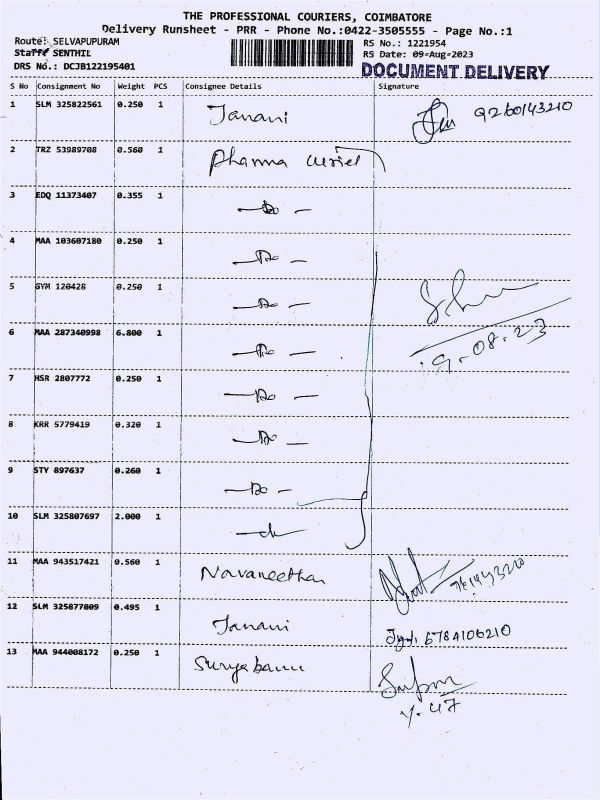 THE PROFESSIONAL COURIERS, COIMBATORE
Delivery Runsheet - PRR - Phone No.:0422-3505555 - Page No.:1
Route: SELVAPUPURAM RS No.: 1221954
Staff: SENTHIL RS Date: 09-Aug-2023
DRS No.: DCJB122195401 DOCUMENT DELIVERY
S No Consignment No Weight PCS Consignee Details Signature
1 SLM 325822561 0.250 1 Janani
2 TRZ 53989708 0.560 1 Dhanna
3 EDQ 11373407 0.355 1 — Do —
4 MAA 103607180 0.250 1 — Do —
5 GYM 120428 0.250 1 — Do —
6 MAA 287340998 6.800 1 — Do —
9.08.23
7 HSR 2807772 0.250 1 — Do —
8 KRR 5779419 0.320 1 — Do —
9 STY 897637 0.260 1 — Do —
10 SLM 325807697 2.000 1 — do
11 MAA 943517421 0.560 1 Navaneethan
12 SLM 325877009 0.495 1 Janani
13 MAA 944008172 0.250 1 Suryabanu